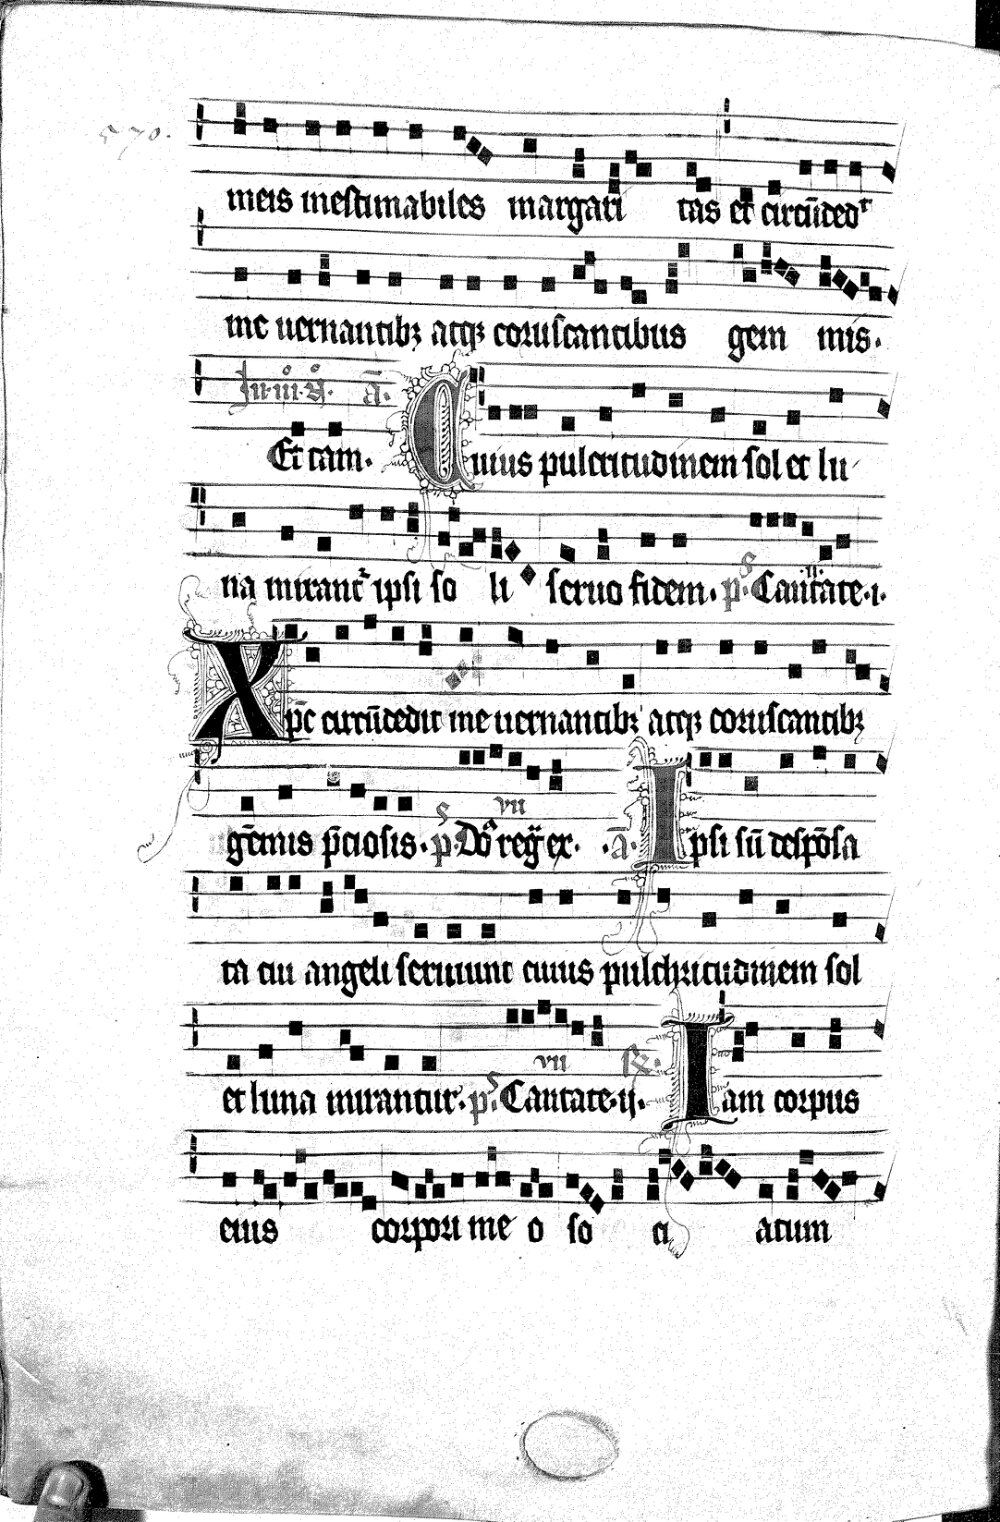 570.
meis inestimabiles margari tas et circūdedʳ
me uernantibꝫ atqꝫ coruscantibus gem mis.
In .iii. Nº. a̅.
Et tam. Cuius pulcritudinem sol et lu
na mirant̄ ipsi so li seruo fidem. pˢ. Cantate .i.
.ii.
Xp̄c circūdedit me uernantibꝫ atqꝫ coruscantibꝫ
vii
gēmis p̄ciosis. pˢ. Dōˢ reg̈ ex. .a̅. Ipsi sū despōsa
ta cui angeli seruiunt cuius pulchritudinem sol
vii
et luna mirantur. pˢ. Cantate .ii. ℟. Iam corpus
eius corpori me o so ci atum